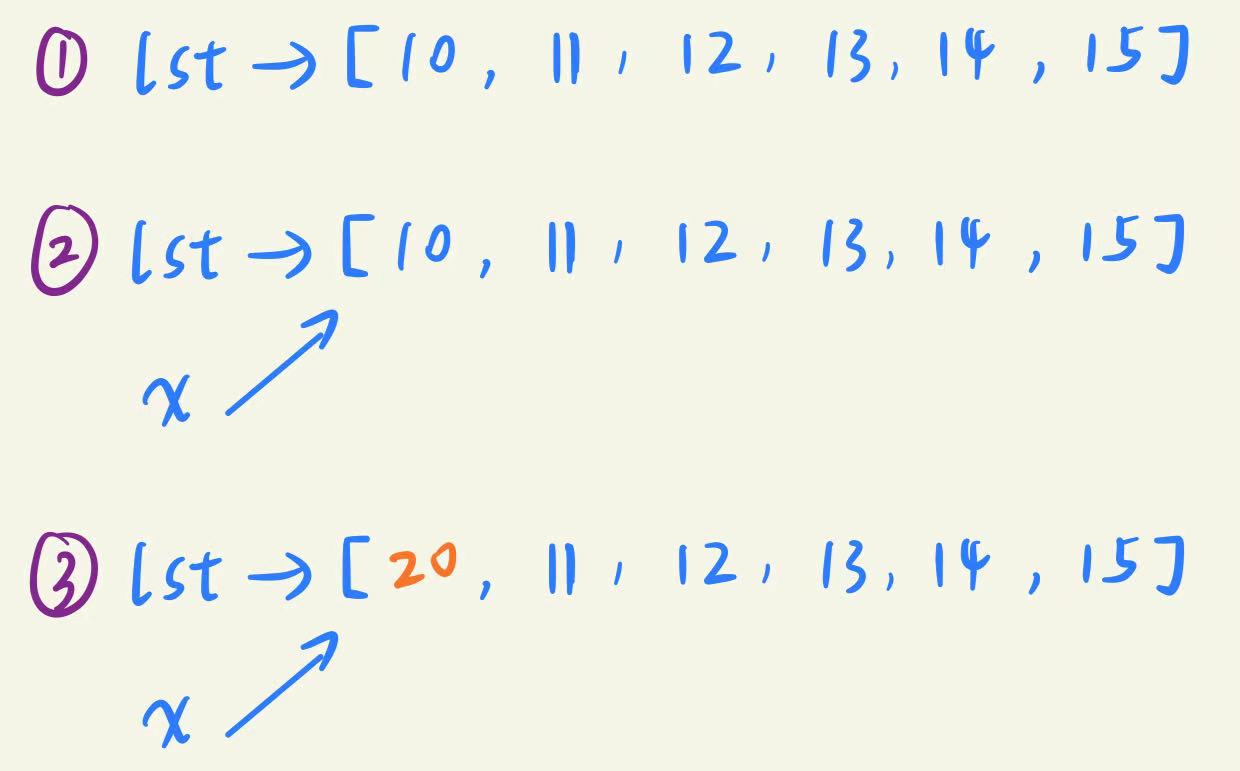 ① lst → [10, 11, 12, 13, 14, 15]
② lst → [10, 11, 12, 13, 14, 15]
x
③ lst → [20, 11, 12, 13, 14, 15]
x